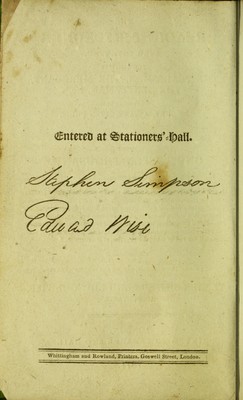 Entered at Stationers'-Hall.
Stephen Simpson
Edward Wise
Whittingham and Rowland, Printers, Goswell Street, London.